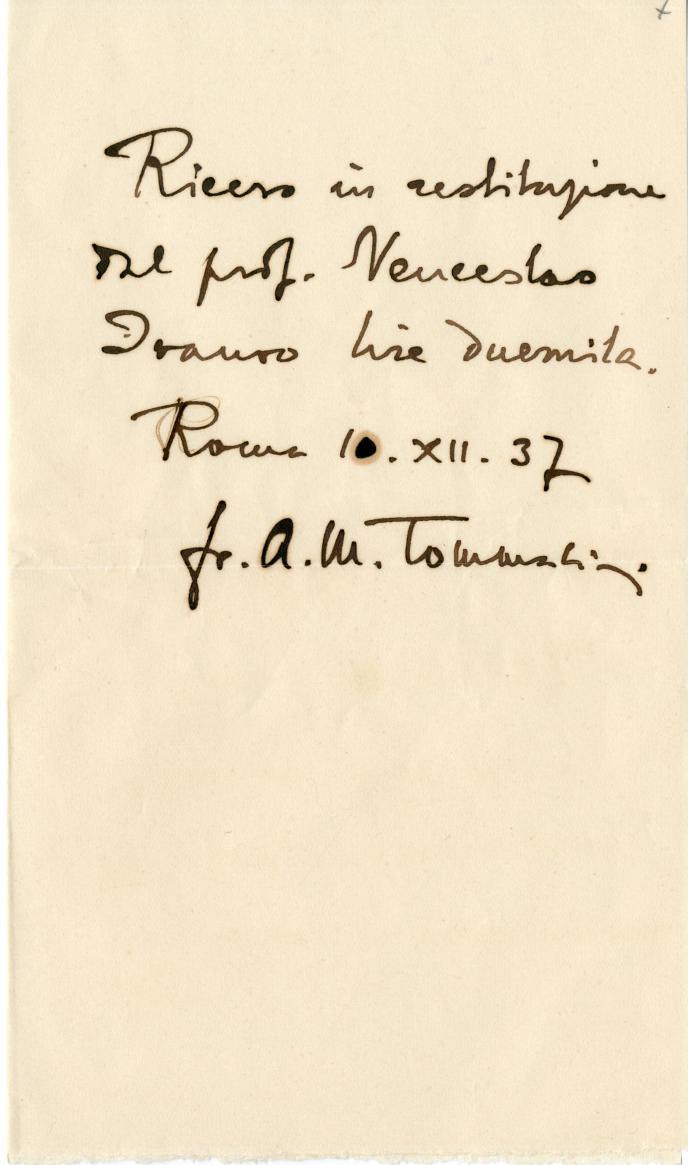 Ricevo in restituzione
dal prof. Venceslao
Ivanov lire duemila.
Roma 10. XII. 37
fr. A. M. Tommasini.